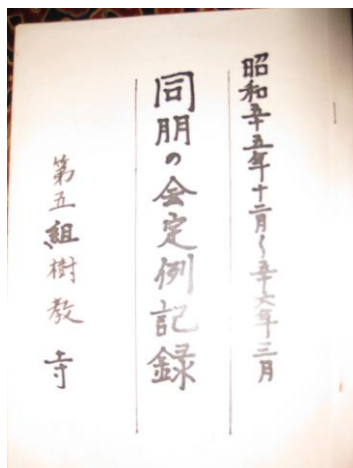 昭和五十五年十二月〜五十六年三月
同朋の会定例記録
第五組樹教寺